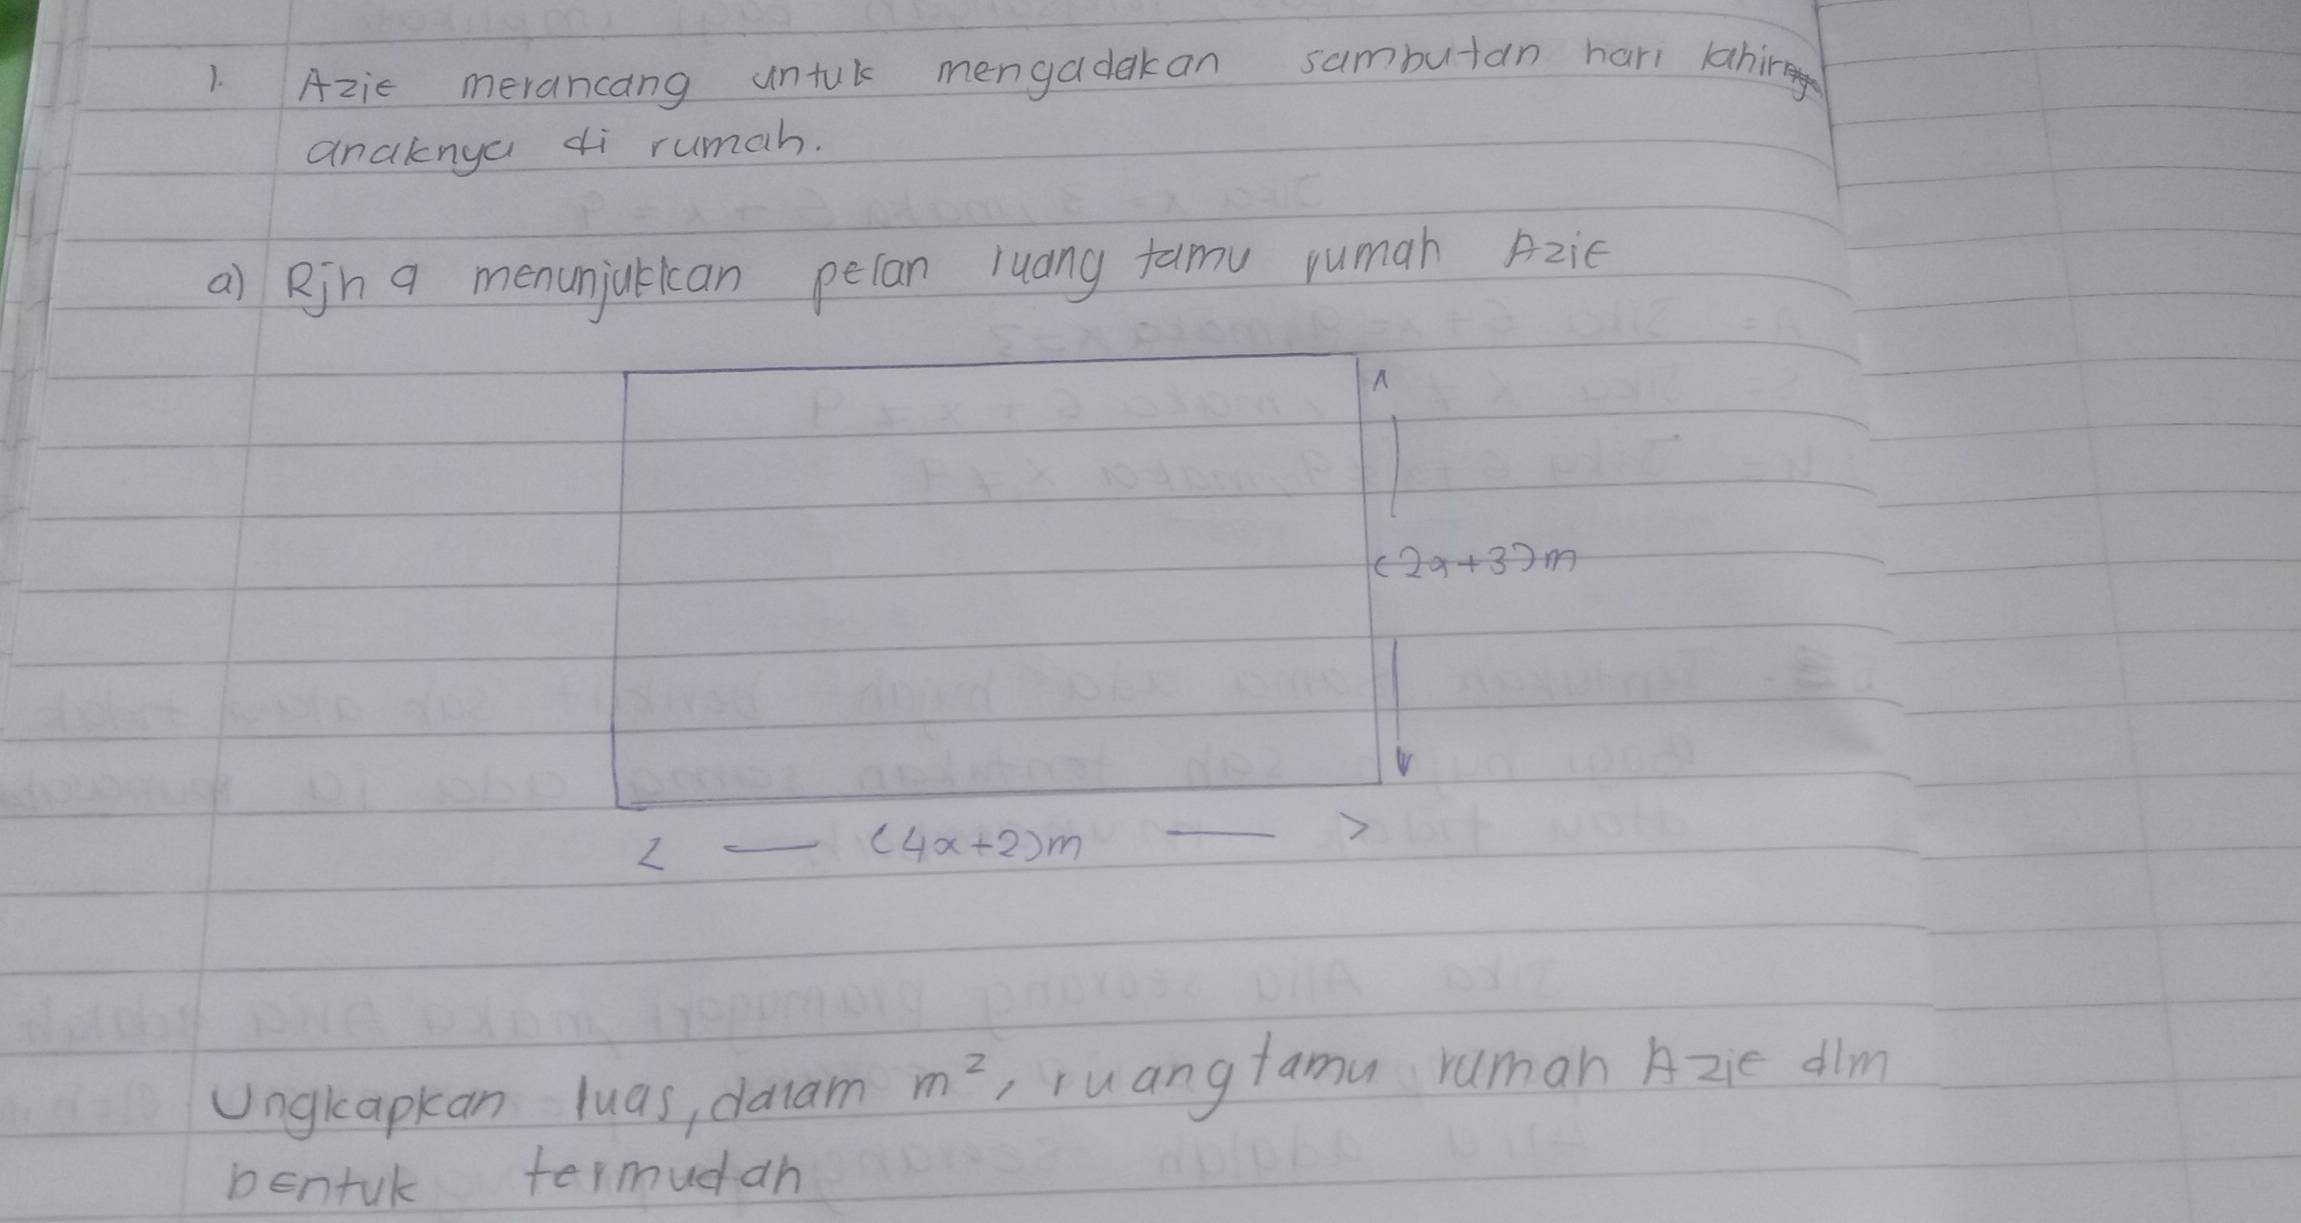 1. Azie merancang untuk mengadakan sambutan hari lahir
anaknya di rumah.
a) Rjh 9 menunjukkan pelan ruang tamu rumah Azie
(2x+3)m
< — (4x+2)m — >
Ungkapkan luas, dalam m², ruang tamu rumah Azie dlm
bentuk termudah